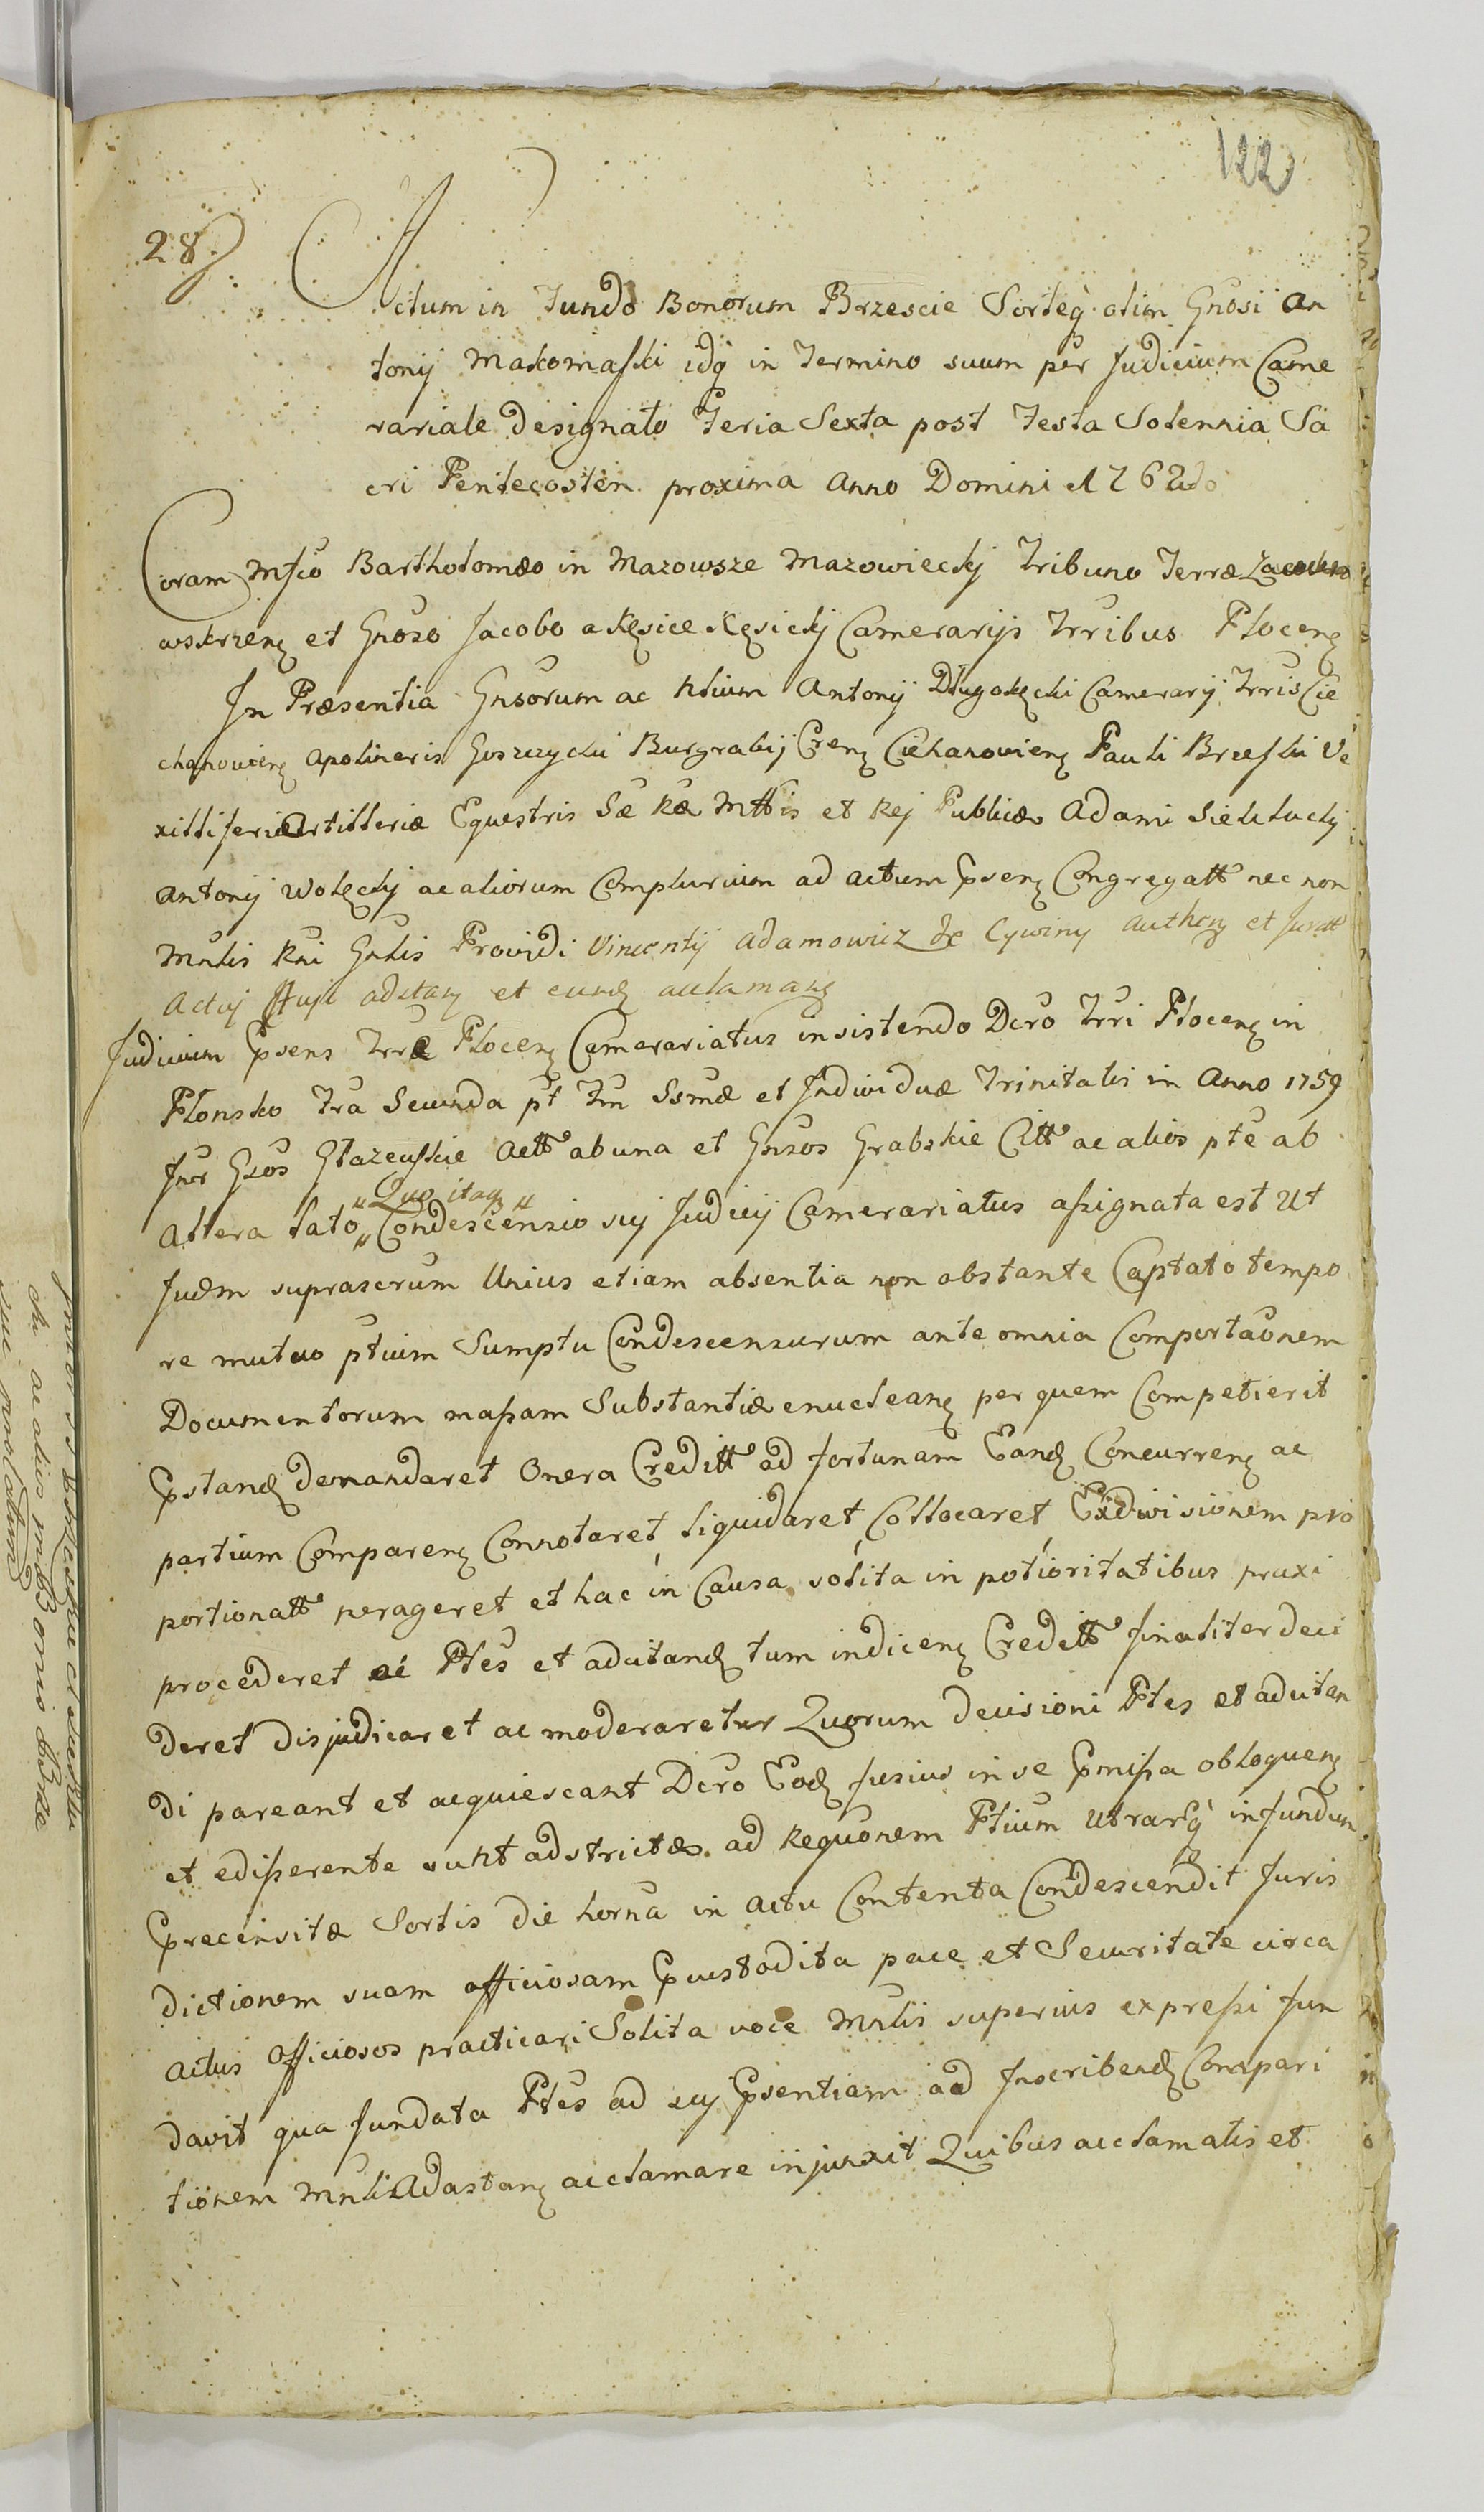 122
28.
Actum in Fundo Bonorum Brzescie Sorteq. olim Gnosi An
tonij Makomaski idq in Termino suum per Judicium Came
rariale Designato Feria Sexta post Festa Solennia Sa
cri Pentecosten proxima Anno Domini 1762do
Coram Mfco Bartholomæo in Mazowsze Mazowieckj Tribuno Terræ
wskrzen et Gnoso Jacobo a Kęsice Kęsickj Camerarijs Trribus Plocen
In Præsentia Gnsorum ac Nlium Antonij Długołęcki Camerarij Trris Cie
chanovien Apolinaris Goszczycki Burgrabij Cren Ciehanovien Pauli Brzeski Ve
xilliferi Artilleriæ Equestris Sæ Ræ Mttis et Rej Publicæ Adami Sieklucky
Antonij Wolęckj ac aliorum Complurium ad actum Psen Congregatt nec non
Mnlis Rni Gnlis Providi Vincentij Adamowicz de Cywiny Authen et Juratt
Actuj Huic adstan et eund aclaman
Judicium Psens Trræ Plocen Camerariatus insistendo Dcro Trri Plocen in
Plonsko Fra Secunda pt Fm Ssmæ et Individuæ Trinitatis in Anno 1759
Inter Gsos Głazewskie Actt ab una et Gnsos Grabskie Citt ac alios pte ab
"Quo itaq"
Altera lato " Condescensio sui Judicij Camerariatus assignata est Ut
Judm suprascrum Unius etiam absentia non obstante Captato tempo
re mutuo ptium Sumptu Condescensurum ante omnia Comportaonem
Documentorum massam Substantiæ enuclean per quem Competierit
Pstand demandaret Onera Creditt ad fortunam Eand Concurren ac
partium Comparen Connotaret, liquidaret, Collocaret, Exdivisionem pro
portionatt perageret et hac in Causa solita in potioritatibus praxi
procederet ac Ptes et adcitand tum indicen Creditt finaliter deci
deret disjudicaret ac moderaretur Quorum Decisioni Ptes et adcitan
di pareant et acquiescant Dcro Eod fusius in se Pmissa obloquen
et edisserente sunt adstrictæ. ad Requonem Ptium Utrarq in fundum
Precensitæ Sortis die horna in actu Contenta Condescendit Juris
dictionem suam officiosam Pcustodita pace et Securitate circa
actus officiosos practicari Solita voce Mnlis superius expressi fun
davit qua fundata Ptes ad sui Psentiam ad Inscribend Compari
tionem Mnlis Adastan acclamare injunxit Quibus acclamatis et